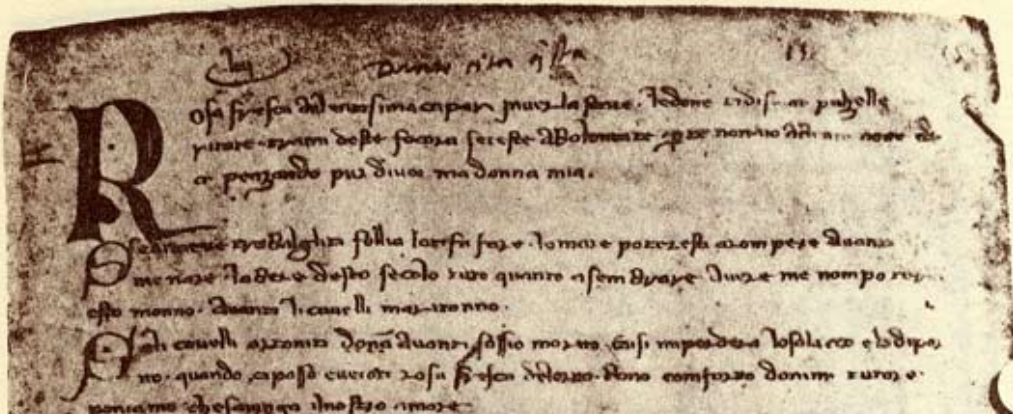 Rosa fresca aulentisima capari inver la state. ledonne tidisiano pulzelle
ritate. trami deste focora seteste abolontate per te nonaio notte
penzando pur divoi madonna mia.
Sedimeve trabalgliti follia lotifa fare. lomare potresti arompere avanti
menare labere desto secolo tuto quanto asembrare avere me nompo
esto monno. avanti licavelli maritonno.
Seli cavelli artoniti donna avanti fossio morto. casi imperdera losolaccio elodipor
to. quando cipasso eveioti rosa fresca delorto. bono conforto donimi tutore.
poniamo chesaiunga ilnostro amore